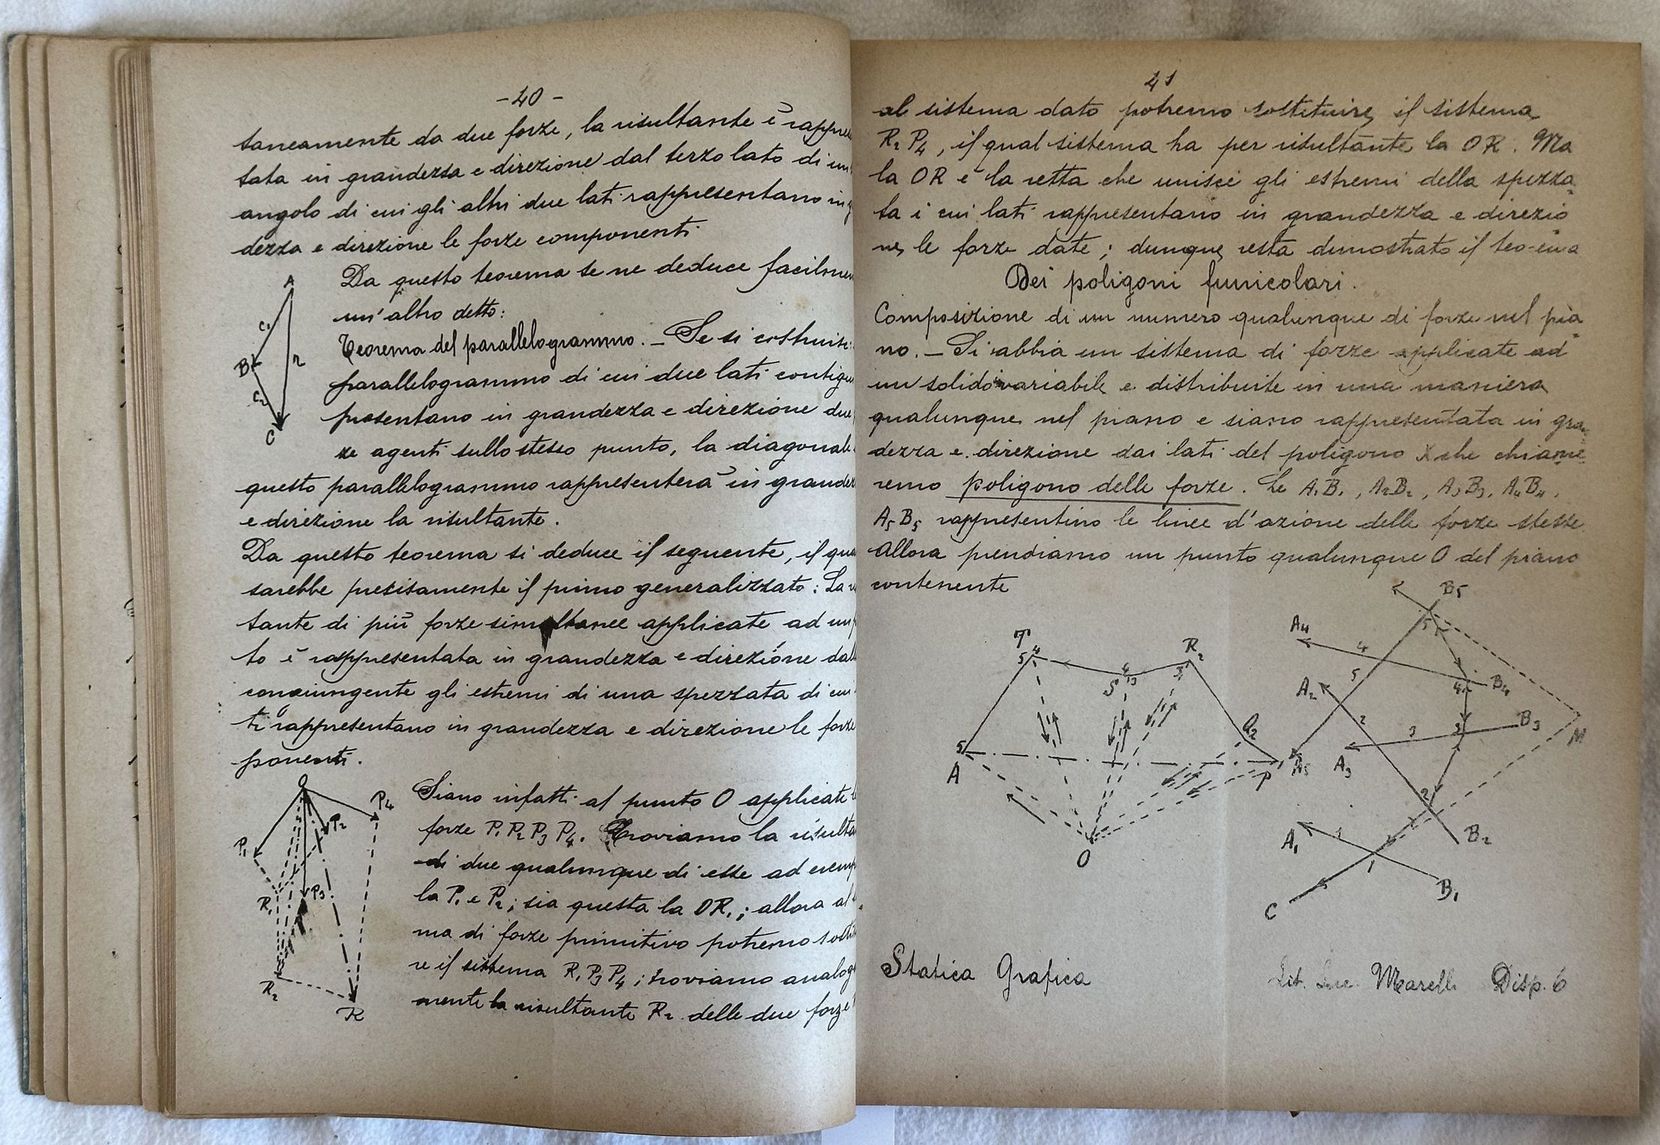 - 40 -
taneamente da due forze, la risultante è rappre
tata in grandezza e direzione dal terzo lato di un
angolo di cui gli altri due lati rappresentano in
dezza e direzione le forze componenti.
Da questo teorema se ne deduce facilmen
un'altro detto:
Teorema del parallelogrammo. — Se si costruisc
parallelogrammo di cui due lati contigu
presentano in grandezza e direzione due
ze agenti sullo stesso punto, la diagonale
questo parallelogrammo rappresenterà in grandez
e direzione la risultante.
Da questo teorema si deduce il seguente, il qua
sarebbe precisamente il primo generalizzato: La
tante di più forze simultanee applicate ad un
to è rappresentata in grandezza e direzione dall
congiungente gli estremi di una spezzata di cui
ti rappresentano in grandezza e direzione le forze
ponenti.
Siano infatti al punto O applicate
forze P1 P2 P3 P4. Troviamo la risulta
di due qualunque di esse ad esemp
la P1 e P2; sia questa la OR1; allora al
ma di forze primitivo potremo sosti
re il sistema R1 P3 P4; troviamo analog
mente la risultante R2 delle due forze
A
c1
B
r
c2
C
O
P4
P2
P1
R1
P3
R2
R
41
al sistema dato potremo sostituire il sistema
R2 P4, il qual sistema ha per risultante la OR. Ma
la OR è la retta che unisce gli estremi della spezza
ta i cui lati rappresentano in grandezza e direzio
ne le forze date; dunque resta dimostrato il teorema
Dei poligoni funicolari.
Composizione di un numero qualunque di forze nel pia
no. — Si abbia un sistema di forze applicate ad
un solido invariabile e distribuite in una maniera
qualunque nel piano e siano rappresentata in gran
dezza e direzione dai lati del poligono che chiame
remo poligono delle forze. Le A1B1, A2B2, A3B3, A4B4,
A5B5 rappresentino le linee d'azione delle forze stesse
Allora prendiamo un punto qualunque O del piano
contenente
T
5 4
S
4 3
R2
3
Q2
5
A
P
O
B5
5
A4
4
5
A2
4
B4
2
3
3
B3
A3
A5
M
2
A1
1
B2
1
B1
C
Statica Grafica
Lit. Marelli Disp. 6